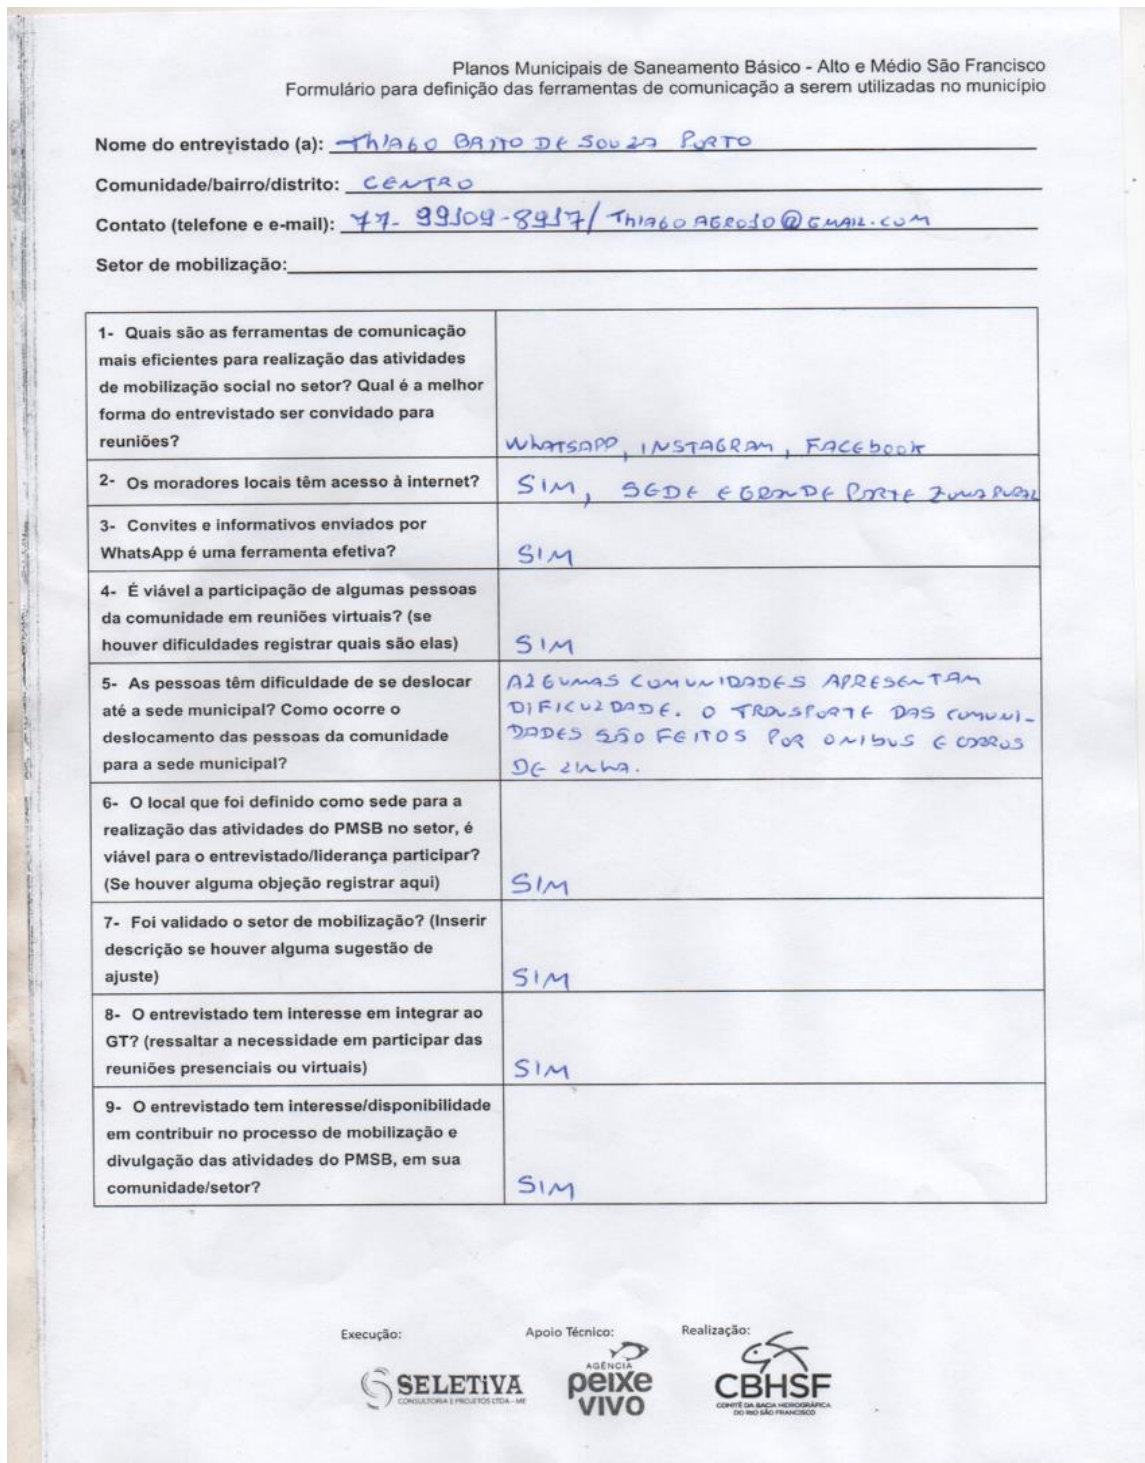 Planos Municipais de Saneamento Básico - Alto e Médio São Francisco
Formulário para definição das ferramentas de comunicação a serem utilizadas no município
Nome do entrevistado (a): THIAGO BRITO DE SOUZA PORTO
Comunidade/bairro/distrito: CENTRO
Contato (telefone e e-mail): 77- 99109-8917/ THIAGOAGRO10@GMAIL.COM
Setor de mobilização:
1- Quais são as ferramentas de comunicação
mais eficientes para realização das atividades
de mobilização social no setor? Qual é a melhor
forma do entrevistado ser convidado para
reuniões?
WHATSAPP, INSTAGRAM, FACEbOOK
2- Os moradores locais têm acesso à internet?
SIM, SEDE E GRANDE PARTE ZONA RURAL
3- Convites e informativos enviados por
WhatsApp é uma ferramenta efetiva?
SIM
4- É viável a participação de algumas pessoas
da comunidade em reuniões virtuais? (se
houver dificuldades registrar quais são elas)
SIM
5- As pessoas têm dificuldade de se deslocar
até a sede municipal? Como ocorre o
deslocamento das pessoas da comunidade
para a sede municipal?
ALGUMAS COMUNIDADES APRESENTAM
DIFICULDADE. O TRANSPORTE DAS COMUNI-
DADES SÃO FEITOS POR ONIBUS E CARROS
DE LINHA.
6- O local que foi definido como sede para a
realização das atividades do PMSB no setor, é
viável para o entrevistado/liderança participar?
(Se houver alguma objeção registrar aqui)
SIM
7- Foi validado o setor de mobilização? (Inserir
descrição se houver alguma sugestão de
ajuste)
SIM
8- O entrevistado tem interesse em integrar ao
GT? (ressaltar a necessidade em participar das
reuniões presenciais ou virtuais)
SIM
9- O entrevistado tem interesse/disponibilidade
em contribuir no processo de mobilização e
divulgação das atividades do PMSB, em sua
comunidade/setor?
SIM
Execução:
SELETIVA
CONSULTORIA E PROJETOS LTDA - ME
Apoio Técnico:
AGÊNCIA
peixe
VIVO
Realização:
CBHSF
COMITÊ DA BACIA HIDROGRÁFICA
DO RIO SÃO FRANCISCO